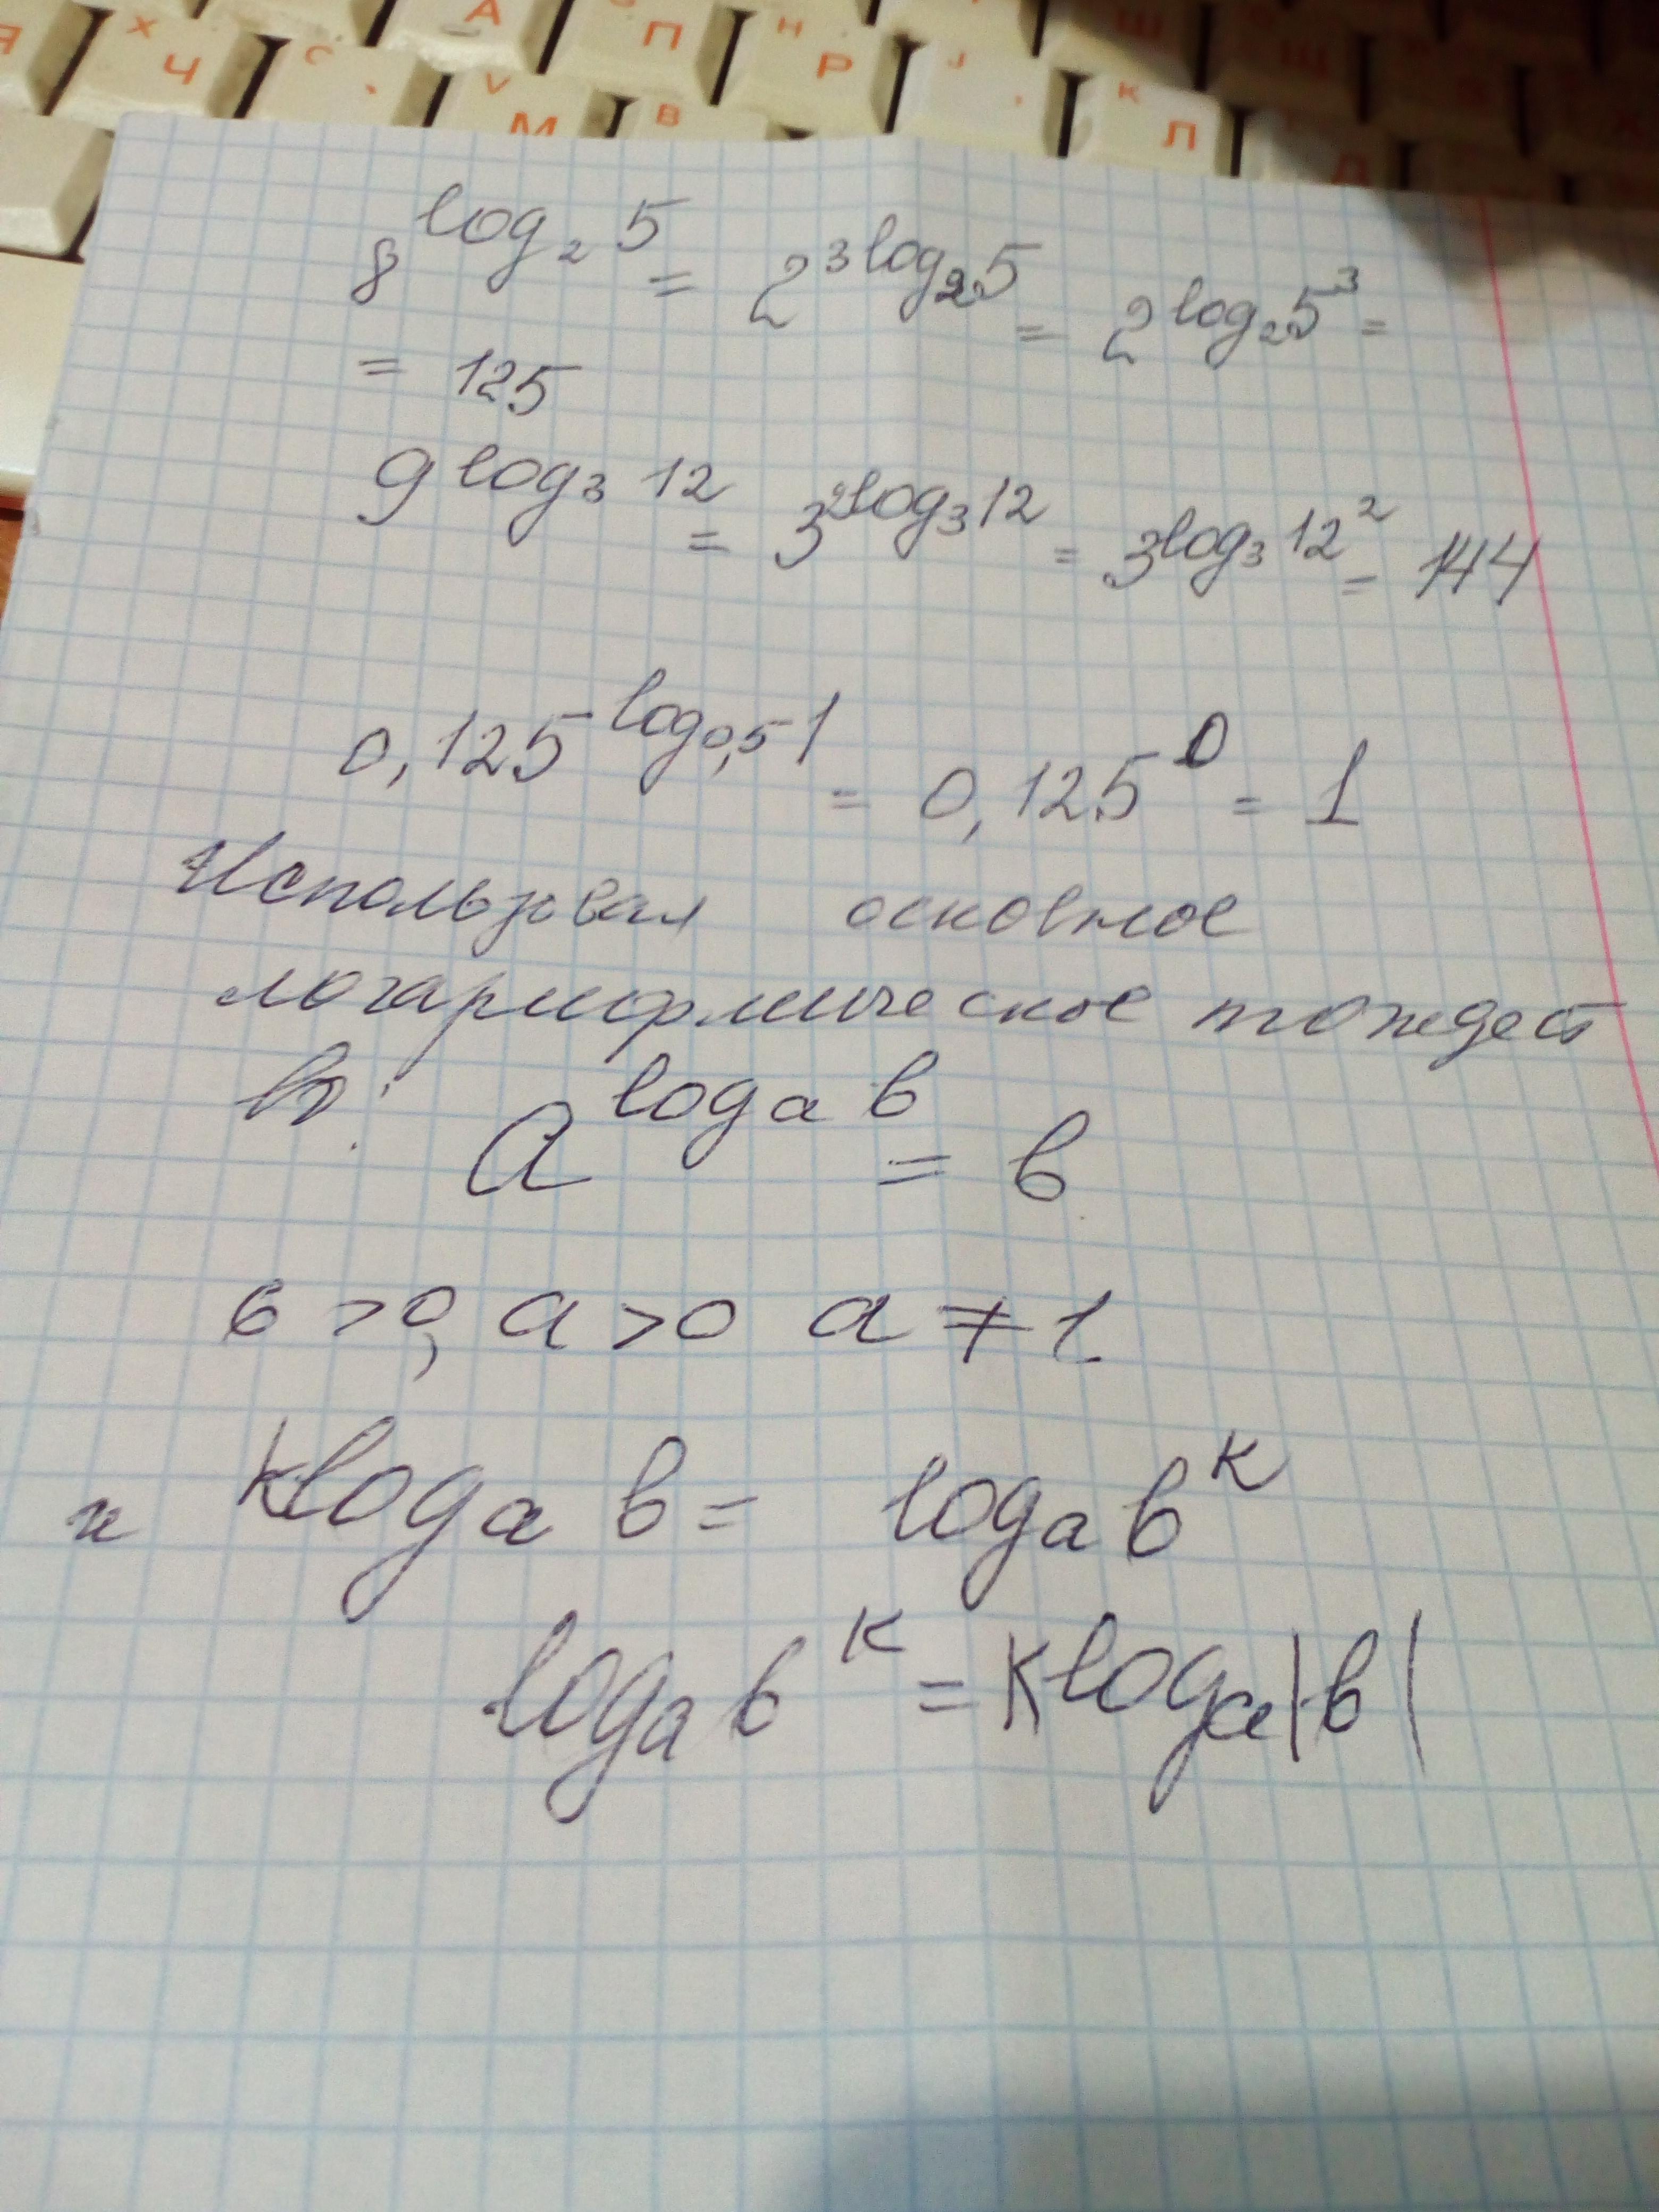 Я Х Ч С А V М П В Н Р J К Л Ш Щ Д
8^{log_2 5} = 2^{3 log_2 5} = 2^{log_2 5^3} =
= 125
9^{log_3 12} = 3^{2log_3 12} = 3^{log_3 12^2} = 144
0,125^{log_{0,5} 1} = 0,125^0 = 1
Использовал основное
логарифмическое тождест
во:
a^{log_a b} = b
b > 0, a > 0 a ≠ 1.
и k log_a b = log_a b^k
log_a b^k = k log_a |b|